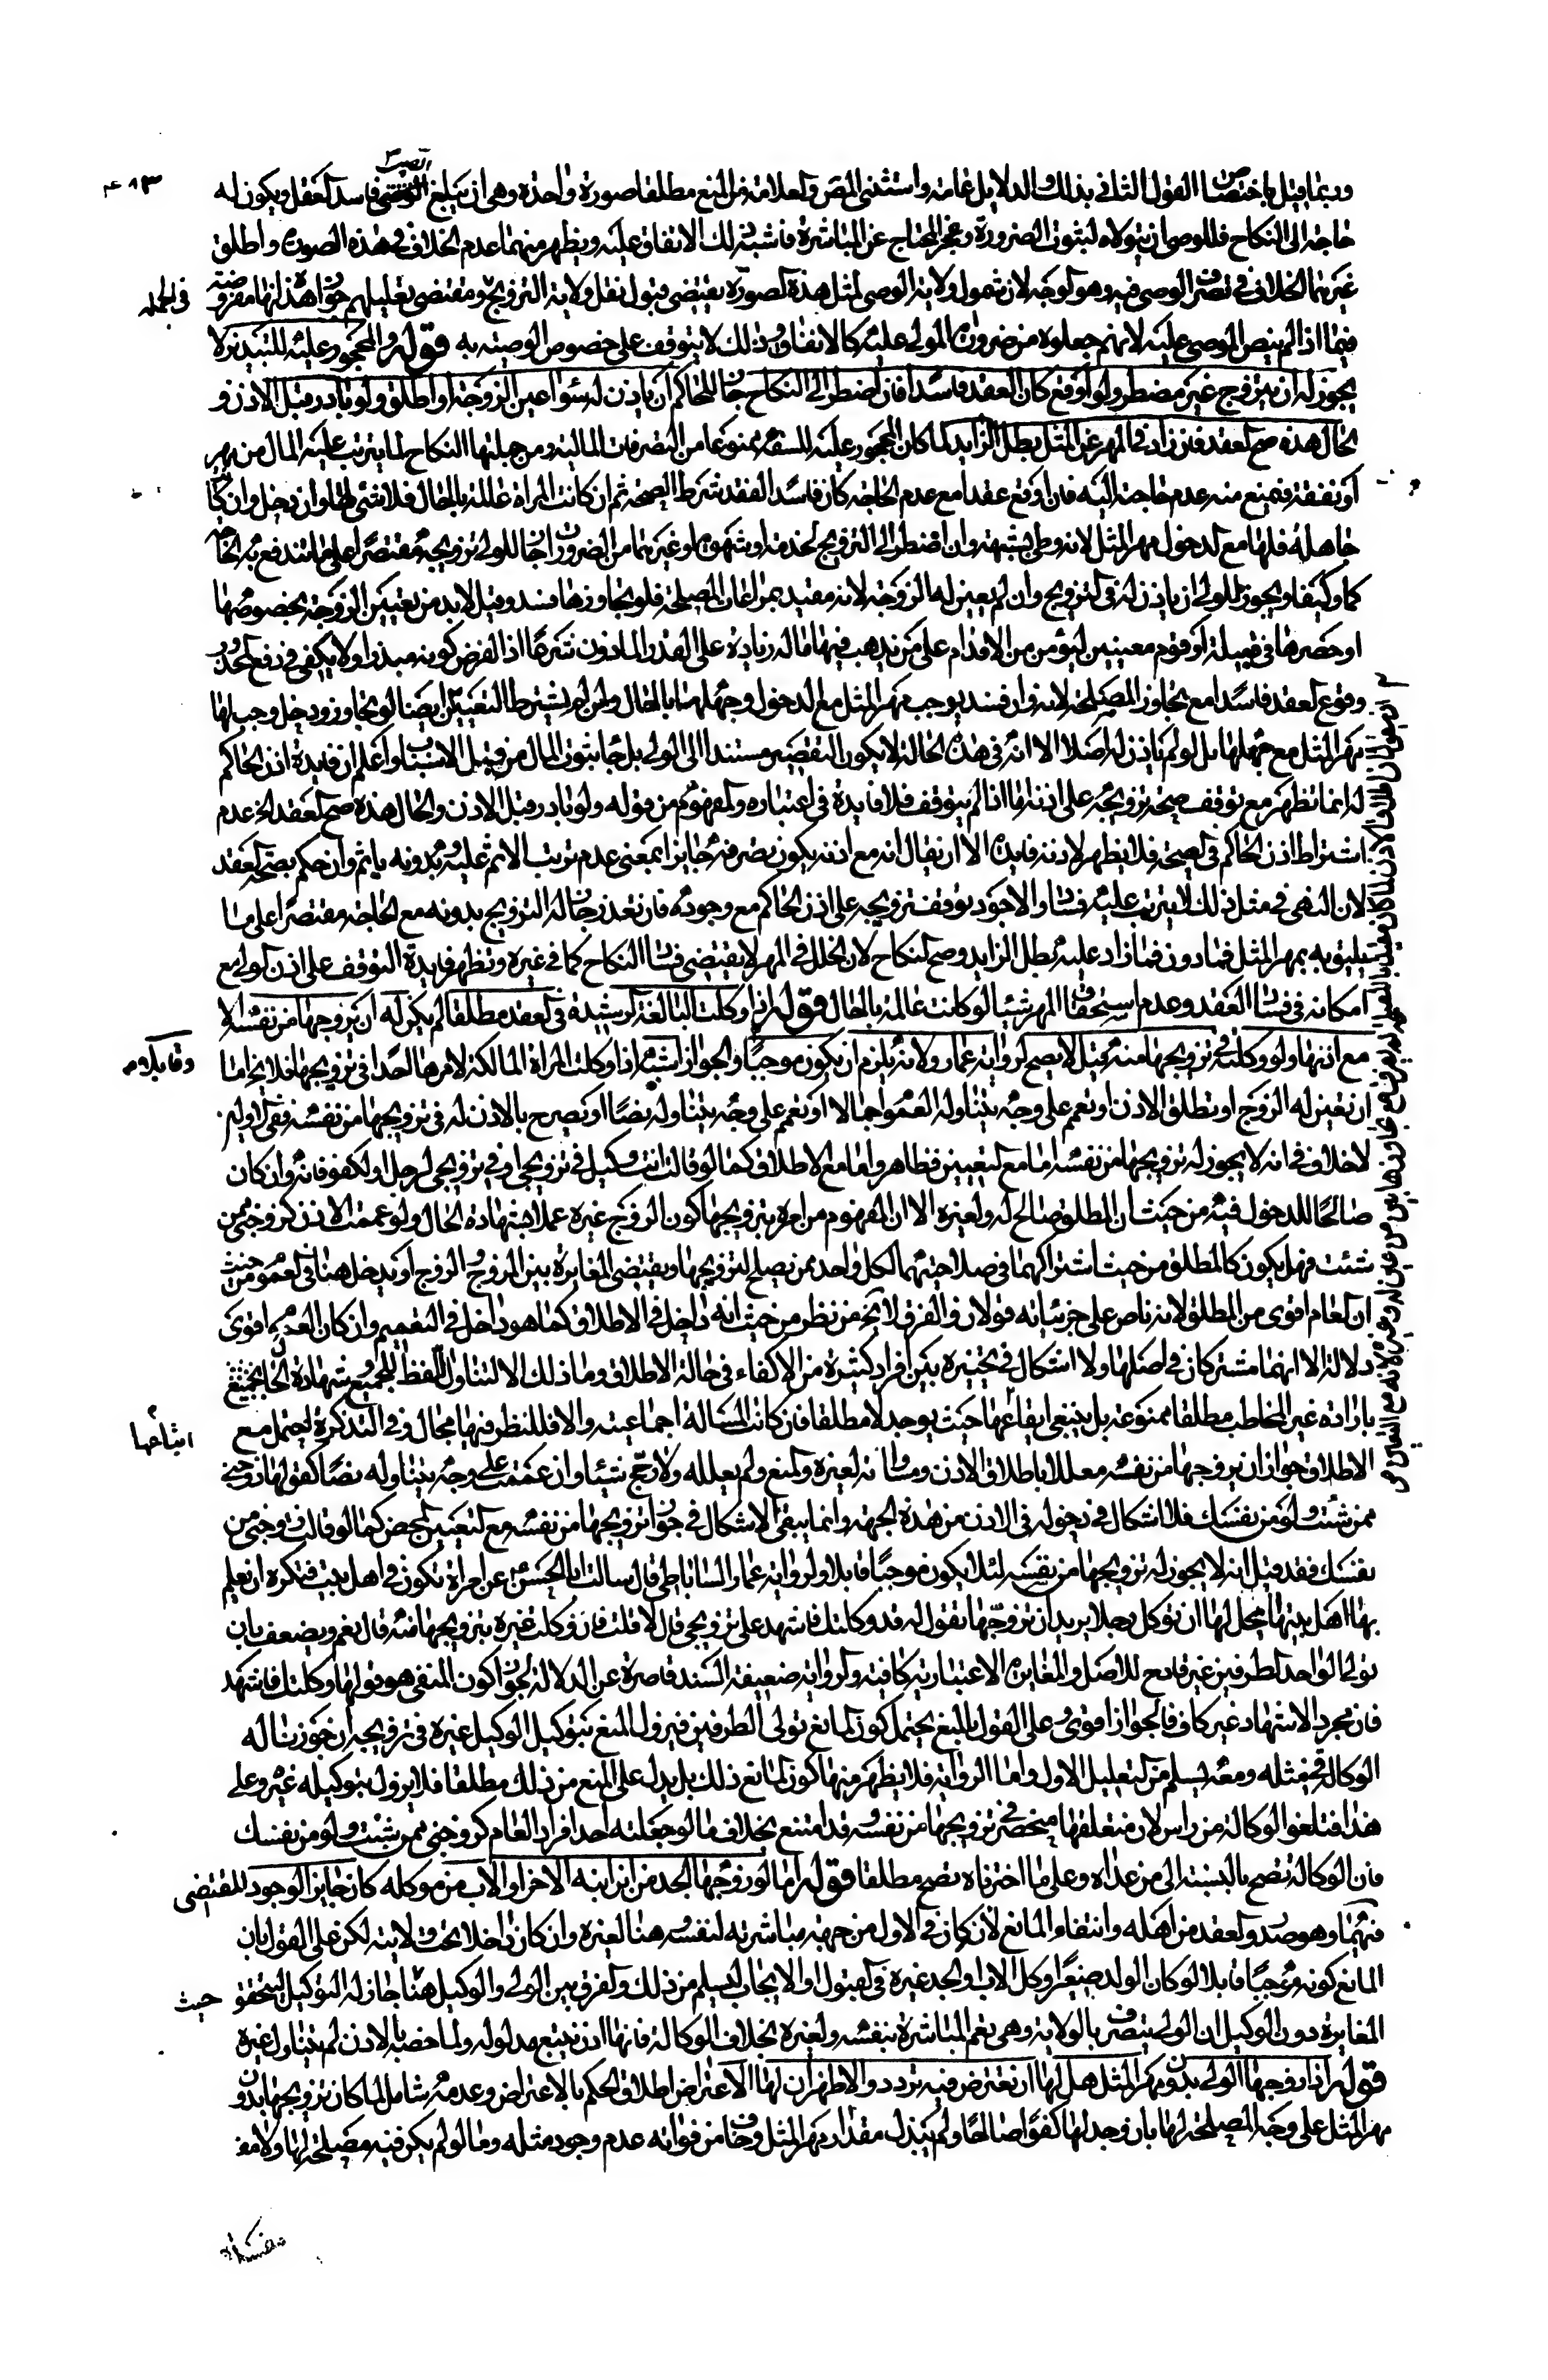 وربما قيل باختصاص القول الثاني بذلك والدلايل عامة واستثنى المص والعلامة من المنع مطلقا صورة واحدة وهي ان يبلغ الصبي فاسد العقل ويكون له
حاجة الى النكاح فللوصي ان يتولاه لثبوت الضرورة وعجز المحتاج عن المباشرة فاشبه ذلك الانفاق عليه ويظهر منهما عدم الخلاف في هذه الصورة واطلق
غيرهما الخلاف في تصرف الوصي فيه وهو اوجه لان شمول ولاية الوصي لمثل هذه الصورة يقتضي قبول نقل ولاية التزويج ومقتضى تعليلهم جواز هذا انها مفروضة
في الجملة
فيما اذا لم ينص الموصي عليه لانهم جعلوه من ضرورات المولى عليه كالانفاق وذلك لا يتوقف على خصوص الوصية به قوله والمحجور عليه للتبذير لا
يجوز له ان يتزوج غير مضطر ولو اوقع كان العقد فاسدا فان اضطر الى النكاح جاز للحاكم ان ياذن له سواء عين الزوجة او اطلق ولو بادر قبل الاذن و
الحال هذه صح العقد فان زاد في المهر عن المثل بطل الزايد لما كان المحجور عليه للسفه ممنوعا من التصرفات المالية ومن جملتها النكاح لما يترتب عليه المال من مهر
او نفقة فيمنع منه عدم حاجته اليه فان اوقع عقدا مع عدم الحاجة كان فاسدا لفقد شرط الصحة ثم ان كانت المراة عالمة بالحال فلا شئ لها وان دخل وان كانت
جاهلة فلها مع الدخول مهر المثل لانه وطي شبهة وان اضطر الى التزويج لخدمة او شهوة او غيرهما من الضرورات جاز للولي تزويجه مقتصرا على ما تندفع به الحاجة
كما وكيفا ويجوز للولي ان ياذن له في التزويج وان لم يعين له الزوجة لانه مقيد بمراعاة المصلحة فلو تجاوزها فسد وقيل لا بد من تعيين الزوجة بخصوصها
او حصرها في قبيلة او قوم معينين ليؤمن من الاقدام على من يذهب فيها ماله زيادة على القدر الماذون شرعا اذ الفرض كونه مبذرا ولا يكفي في رفع المحذور
وقوع العقد فاسدا مع تجاوز المصلحة لانه وان فسد يوجب مهر المثل مع الدخول وجهلها بالحال ولمن لم يشترط التعيين ايضا لو تجاوز ودخل وجب لها
مهر المثل مع جهلها بل لو لم ياذن له اصلا الا انه في هذه الحالة لا يكون التقصير مستندا الى الولي بل جاء ثبوت المال من قبيل الاسباب واعلم ان فايدة اذن الحاكم
له انما تظهر مع توقف صحة تزويجه على اذنه اما اذا لم يتوقف فلا فايدة في اعتباره والمفهوم من قوله ولو بادر قبل الاذن والحال هذه صح العقد الخ عدم
اشتراط اذن الحاكم في الصحة فلا يظهر لاذنه فايدة الا ان يقال انه مع اذنه يكون تصرفه جايزا بمعنى عدم ترتب الاثم عليه وبدونه ياثم وان حكم بصحة العقد
لان النهي في مثل ذلك لا يترتب عليه فساد والاجود توقف تزويجه على اذن الحاكم مع وجوده فان تعذر جاز له التزويج بدونه مع الحاجة مقتصرا على ما
يليق به بمهر المثل فما دون فما زاد عليه بطل الزايد وصح النكاح لان الخلل في المهر لا يقتضي فساد النكاح كما في غيره وتظهر فايدة التوقف على اذن الولي مع
امكانه في فساد العقد وعدم استحقاق المهر شيئا لو كانت عالمة بالحال قوله اذا وكلت البالغة الرشيدة في العقد مطلقا لم يكن له ان يزوجها من نفسه الا
مع اذنها ولو وكلته في تزويجها منه قيل لا يصح لرواية عمار ولانه يلزم ان يكون موجبا وقابلا والجواز اشبه اذا وكلت المراة المالكة لامرها احدا في تزويجها فلا يخ اما
ان تعين له الزوج او تطلق الاذن او تعمم على وجه يتناوله العموم اجمالا او تعمم على وجه يتناوله نصا او تصرح بالاذن له في تزويجها من نفسه ففي الاولين
لا خلاف في انه لا يجوز له تزويجها من نفسه اما مع التعيين فظاهر واما مع الاطلاق كما لو قالت انت وكيلي في تزويجي او في تزويجي لرجل او لكفو فانه وان كان
صالحا للدخول فيه من حيث ان المطلق صالح له ولغيره الا ان المفهوم من امره بتزويجها كون الزوج غيره عملا بشهادة الحال ولو عممت الاذن كزوجني ممن
شئت فهل يكون كالمطلق من حيث اشتراكهما في صلاحيتهما لكل واحد ممن يصلح لتزويجها ويقتضي المغايرة بين المزوج والزوج او يدخل هنا في العموم من حيث
ان العام اقوى من المطلق لانه ناص على جزئياته قولان والفرق لا يخ من نظر من حيث انه داخل في الاطلاق كما هو داخل في التعميم وان كان العموم اقوى
دلالة الا انهما مشتركان في اصلها ولا اشكال في تخييره بين افراد كثيرة من الاكفاء في حالة الاطلاق وما ذلك الا لتناول اللفظ للجميع وشهادة الحال
بارادة غير المخاطب مطلقا ممنوعة بل ينبغي ايقاعها حيث يوجد لا مطلقا فان كانت المسالة اجماعية والا فللنظر فيها مجال وفي التذكرة يحتمل مع
ايقاعها
الاطلاق جواز ان يزوجها من نفسه معللا باطلاق الاذن ومساواته لغيره والمنع ولم يعلله ولا رجح شيئا وان عممت على وجه يتناوله نصا كقولها زوجني
ممن شئت ولو من نفسك فلا اشكال في دخوله في الاذن من هذه الجهة وانما يبقى الاشكال في جواز تزويجها من نفسه مع التعيين المحض كما لو قالت زوجني من
نفسك فقد قيل انه لا يجوز له تزويجها من نفسه لئلا يكون موجبا قابلا ولرواية عمار الساباطي قال سالت ابا الحسن ع عن امراة تكون في اهل بيت فتكره ان يعلم
بها اهل بيتها يحل لها ان توكل رجلا يريد ان يتزوجها تقول له قد وكلتك فاشهد على تزويجي قال لا قلت فان وكلت غيره بتزويجها منه قال نعم ويضعف بان
تولي الواحد الطرفين غير قادح للاصل والمغايرة الاعتبارية كافية والرواية ضعيفة السند قاصرة عن الدلالة لجواز كون المنفي هو قولها وكلتك فاشهد
فان مجرد الاشهاد غير كاف فالجواز اقوى وعلى القول بالمنع يحتمل كون المانع تولي الطرفين فيزول المنع بتوكيل الوكيل غيره في تزويجه ان جوزنا له
الوكالة في مثله ومعه يسلم من التعليل الاول واما الرواية فلا يظهر منها كون المانع ذلك بل يدل على المنع من ذلك مطلقا فلا يزول بتوكيله غيره وعلى
هذا فتلغو الوكالة من راس لان متعلقها منحصر في تزويجها من نفسه وقد امتنع بخلاف ما لو جعلته احد افراد العام كزوجني ممن شئت ولو من نفسك
فان الوكالة تصح بالنسبة الى من عداه وعلى ما اخترناه تصح مطلقا قوله اما لو زوجها الجد من ابن ابنه الاخر او الاب من موكله كان جايزا لوجود المقتضي
فيهما وهو صدور العقد من اهله وانتفاء المانع لان كان في الاول من جهة مباشرته لنفسه وهنا لغيره وان كان داخلا تحت ولايته لكن على القول بان
المانع كونه موجبا قابلا لو كان الولد صغيرا وكل الاب او الجد غيره في القبول او الايجاب ليسلم من ذلك والفرق بين الولي والوكيل هنا جاز له التوكيل لتحقق
حيث
المغايرة دون الوكيل ان الولي يتصرف بالولاية وهي تعم المباشرة بنفسه ولغيره بخلاف الوكالة فانها اذن يتبع مدلوله ولما خصه بالاذن لم يتناول غيره
قوله اذا زوجها الولي بدون مهر المثل هل لها ان تعترض فيه تردد والاظهر ان لها الاعتراض اطلاق الحكم بالاعتراض وعدمه شامل لما كان تزويجها بدون
مهر المثل على وجه المصلحة لها بان وجد لها كفوا صالحا ولم يبذل مقدار مهر المثل وخاف من فواته عدم وجود مثله وما لو لم يكن فيه مصلحة لها ولا مف